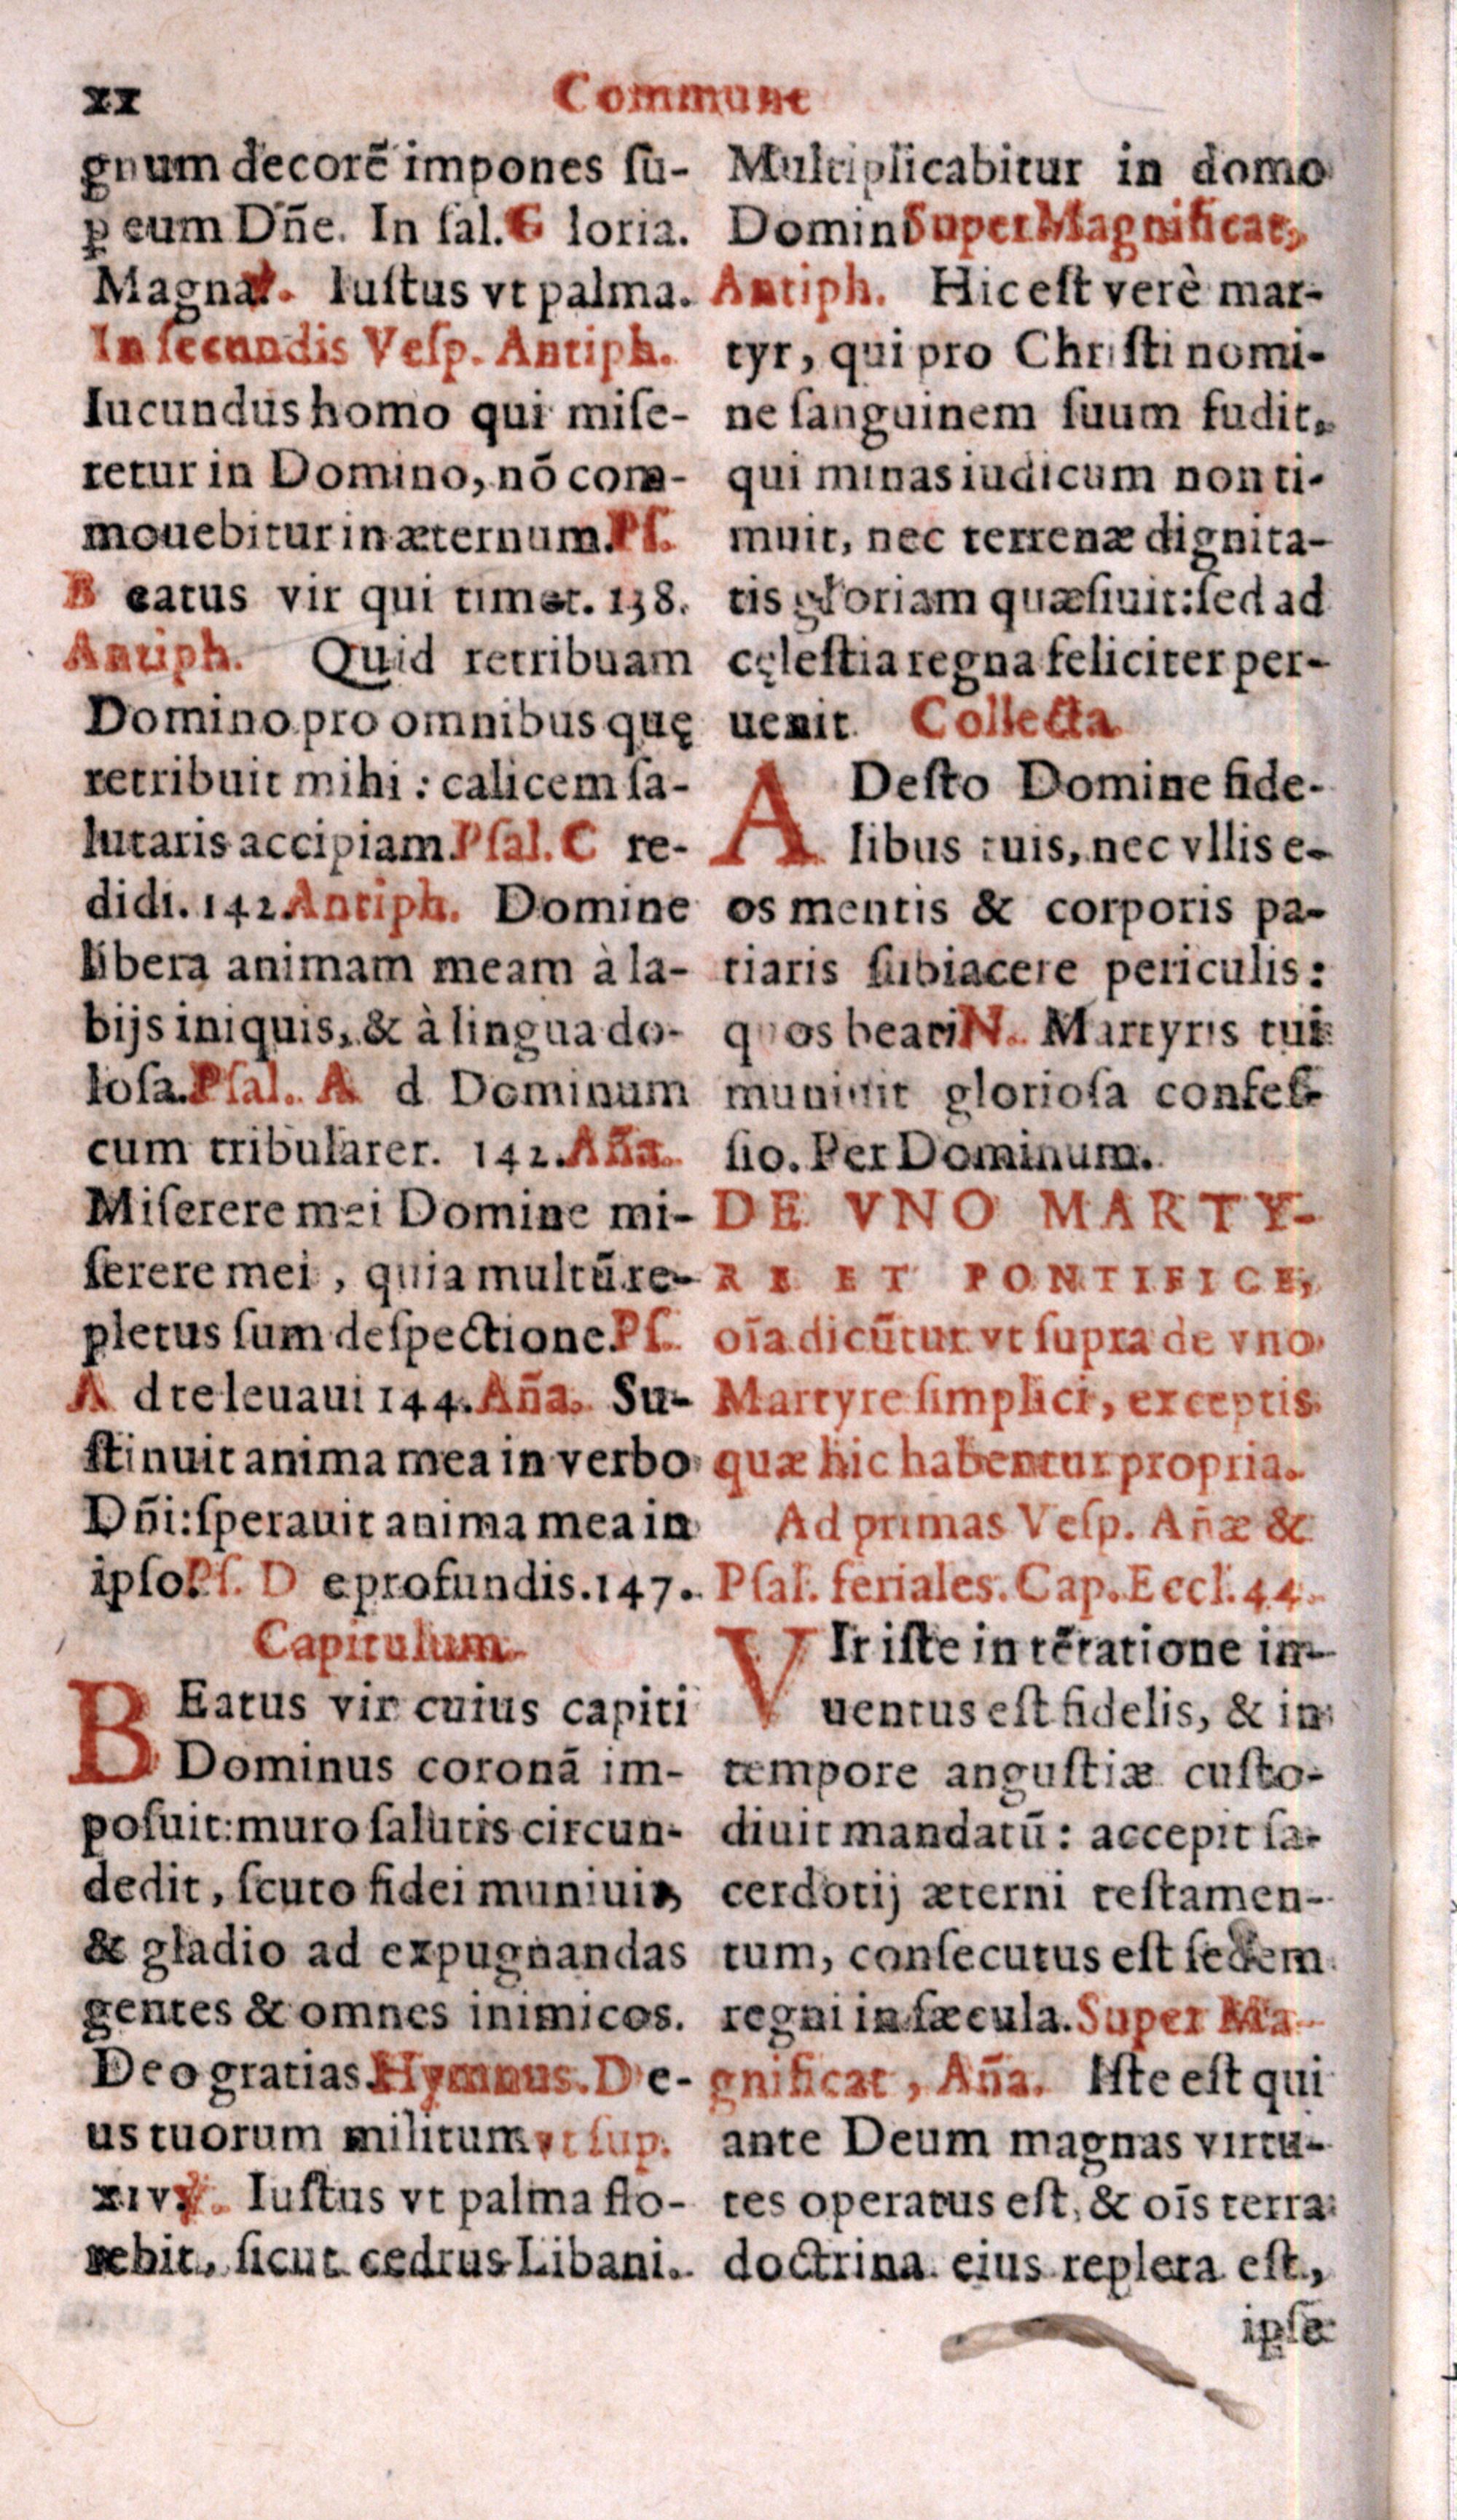 xx
Commune
gnum decorẽ impones ſu-
ꝑ eum Dñe. In ſal. G loria.
Magna. ℣. Iuſtus vt palma.
In ſecundis Veſp. Antiph.
Iucundus homo qui miſe-
retur in Domino, nõ com-
mouebitur in æternum. Pſ.
B eatus vir qui timet. 138.
Antiph. Quid retribuam
Domino pro omnibus quę
retribuit mihi : calicem ſa-
lutaris accipiam. Pſal. C re-
didi. 142. Antiph. Domine
libera animam meam à la-
bijs iniquis, & à lingua do-
loſa. Pſal. A d Dominum
cum tribularer. 142. Aña.
Miſerere mei Domine mi-
ſerere mei , quia multũ re-
pletus ſum deſpectione. Pſ.
A d te leuaui 144. Aña. Su-
ſtinuit anima mea in verbo
Dñi: ſperauit anima mea in
ipſo. Pſ. D e profundis. 147.
Capitulum.
BEatus vir cuius capiti
Dominus coronã im-
poſuit: muro ſalutis circun-
dedit, ſcuto fidei muniuit,
& gladio ad expugnandas
gentes & omnes inimicos.
Deo gratias. Hymnus. D e-
us tuorum militum vt ſup.
xiv. ℣. Iuſtus vt palma flo-
rebit, ſicut cedrus Libani.
Multiplicabitur in domo
Domini Super Magnificat,
Antiph. Hic eſt verè mar-
tyr, qui pro Chriſti nomi-
ne ſanguinem ſuum fudit,
qui minas iudicum non ti-
muit, nec terrenæ dignita-
tis gloriam quæſiuit: ſed ad
cęleſtia regna feliciter per-
uenit. Collecta.
ADeſto Domine fide-
libus tuis, nec vllis e-
os mentis & corporis pa-
tiaris ſubiacere periculis:
quos beati N. Martyris tui
muniuit glorioſa confeſ-
ſio. Per Dominum.
DE VNO MARTY-
RE ET PONTIFICE,
oĩa dicũtur vt ſupra de vno
Martyre ſimplici, exceptis
quæ hic habentur propria.
Ad primas Veſp. Añæ &
Pſal. feriales. Cap. Eccl. 44.
VIr iſte in tẽtatione in-
uentus eſt fidelis, & in
tempore anguſtiæ cuſto-
diuit mandatũ : accepit ſa-
cerdotij æterni teſtamen-
tum, conſecutus eſt ſedem
regni in ſæcula. Super Ma-
gnificat , Aña. Iſte eſt qui
ante Deum magnas virtu-
tes operatus eſt, & oĩs terra
doctrina eius repleta eſt,
ipſe